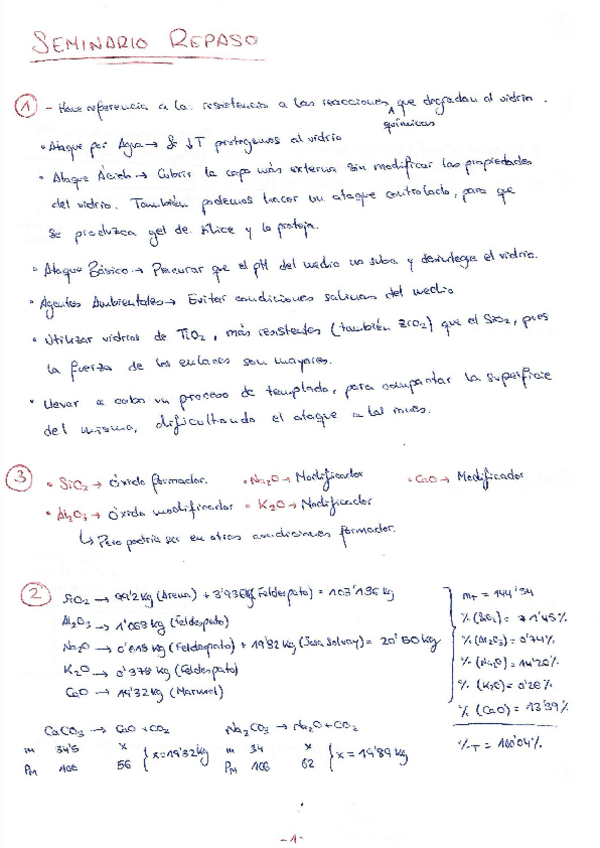 SEMINARIO REPASO
① - Hace referencia a la resistencia a las reacciones químicas que degradan al vidrio.
• Ataque por Agua → Se ↓T protegemos al vidrio
• Ataque Ácido → Cubrir la capa más externa sin modificar las propiedades
del vidrio. También podemos hacer un ataque controlado, para que
se produzca gel de sílice y lo proteja.
• Ataque Básico → Procurar que el pH del medio no suba y desintegre el vidrio.
• Agentes Ambientales → Evitar condiciones salinas del medio
• Utilizar vidrios de TiO2, más resistentes (también ZrO2) que el SiO2, pues
la fuerza de los enlaces son mayores.
• Llevar a cabo un proceso de templado, para compactar la superficie
del mismo, dificultando el ataque a las
③ • SiO2 → óxido formador. • Na2O → Modificador • CaO → Modificador
• Al2O3 → óxido modificador • K2O → Modificador
↳ Pero podría ser en otras condiciones formador.
② SiO2 → 99'2 kg (Arena) + 3'936 kg (Feldespato) = 103'136 kg
Al2O3 → 1'063 kg (Feldespato)
Na2O → (Feldespato) + (Sosa Solvay) = kg
K2O → 0'378 kg (Feldespato)
CaO → 19'32 kg (Marmol)
mT = 144'34
% (SiO2) = 71'45%
% (Al2O3) = 0'74%
% (Na2O) = 14'20%
% (K2O) = 0'26%
% (CaO) = 13'39%
%T = 100'04%
CaCO3 → CaO + CO2 Na2CO3 → Na2O + CO2
m 34'5 x } x = 19'32 kg m 34 x } x = 19'89 kg
PM 100 56 PM 106 62
-1-